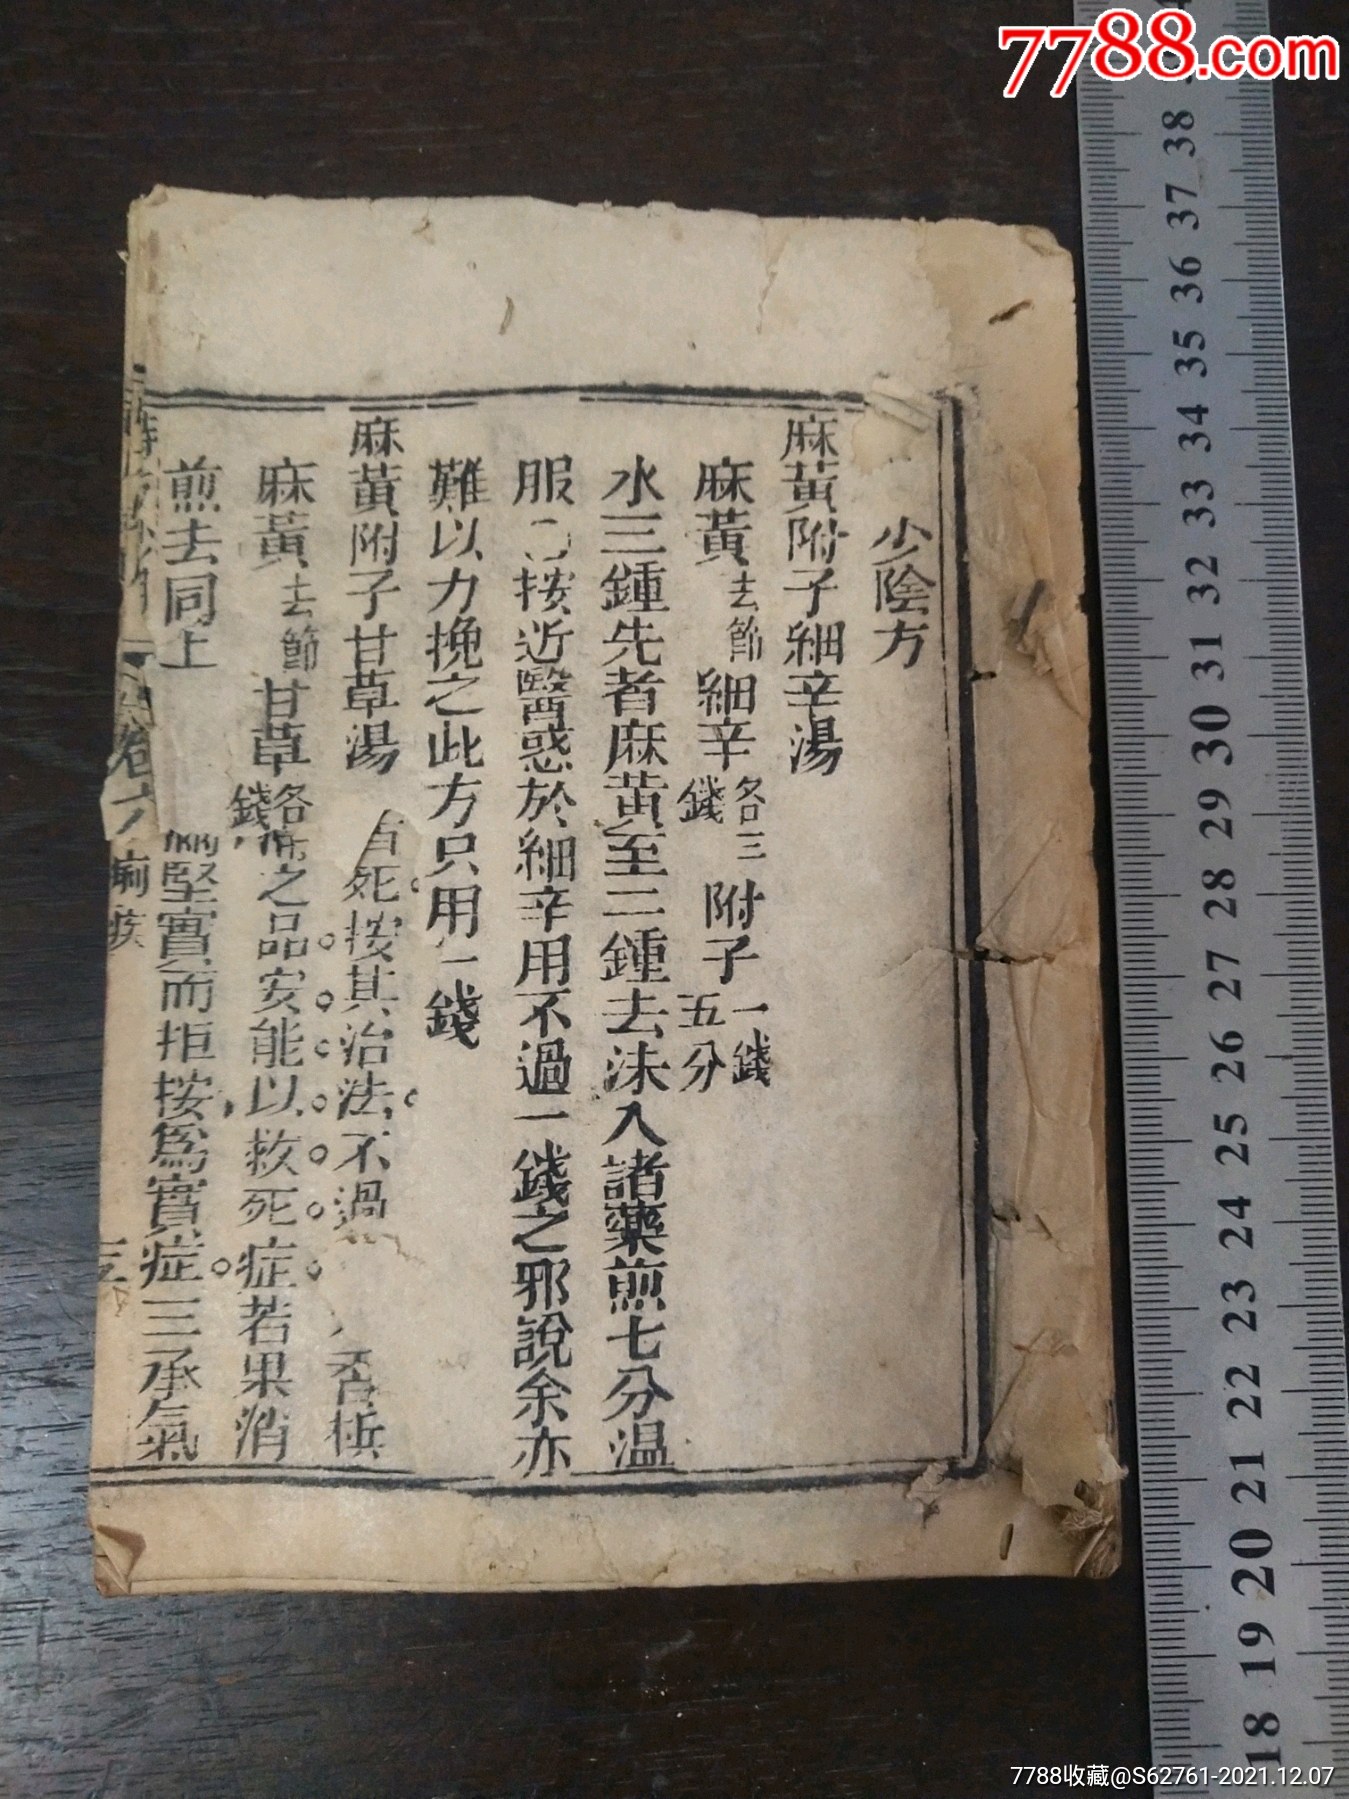 7788.com
少陰方
麻黃附子細辛湯
麻黃去節細辛各三錢附子一錢五分
水三鍾先者麻黃至二鍾去沫入諸藥煎七分温
服按近醫惑於細辛用不過一錢之邪說余亦
難以力挽之此方只用一錢
麻黃附子甘草湯
死按其治法不過
麻黃去節甘草各錢
之品安能以救死症若果消
煎去同上
堅實而拒按爲實症三承氣
卷六
痢疾
38 37 36 35 34 33 32 31 30 29 28 27 26 25 24 23 22 21 20 19 18
7788收藏@S62761-2021.12.07